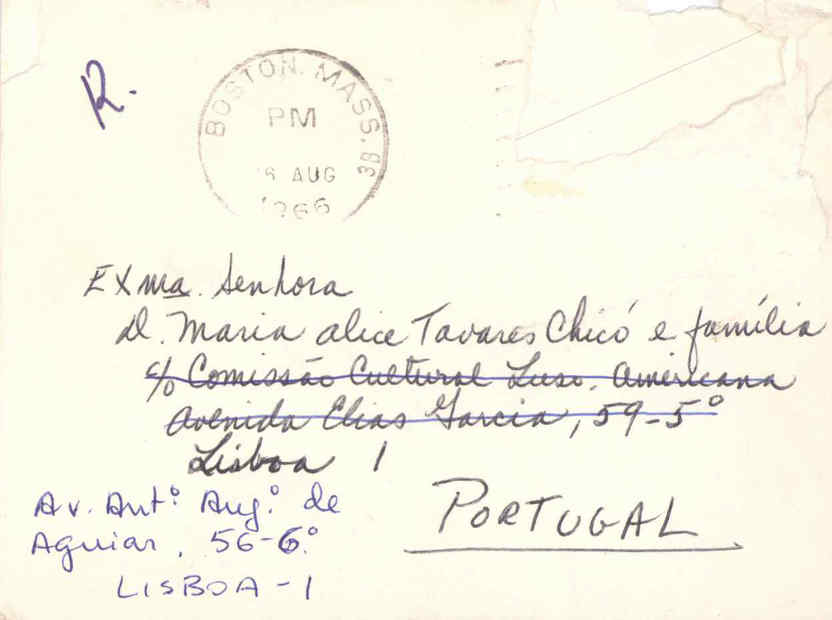 R.
BOSTON. MASS. 38
PM
6 AUG
1966
Exma. Senhora
D. Maria Alice Tavares Chicó e família
c/o Comissão Cultural Luso. Americana
Avenida Elias Garcia, 59-5º
Lisboa 1
PORTUGAL
Av. Antº Augº de
Aguiar, 56-6º
LISBOA-1